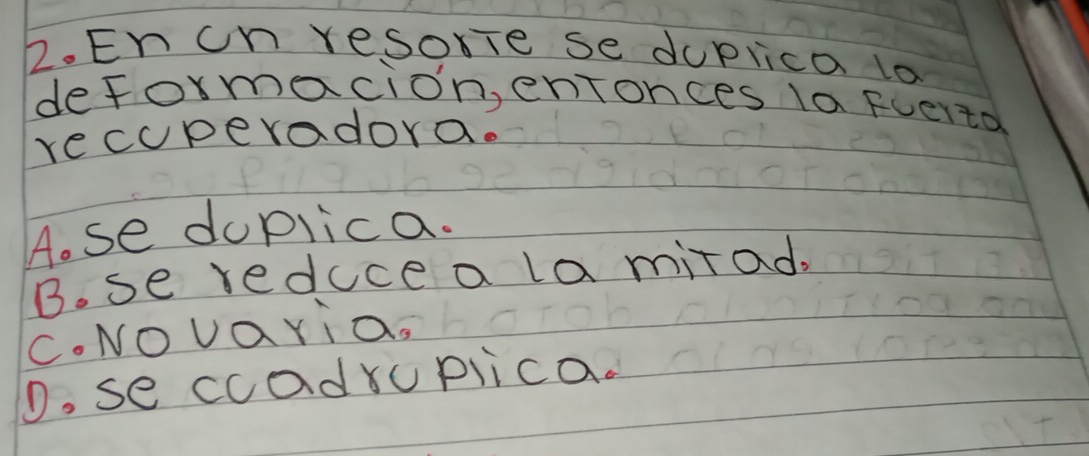 2. En un resorte se duplica la
deformación, entonces la fuerza
recuperadora.
A. se duplica.
B. se reduce a la mitad.
C. No varia.
D. se cuadruplica.